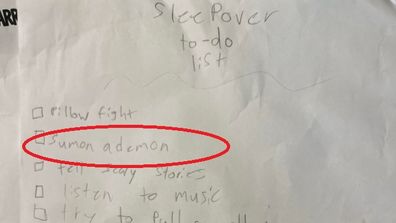 ARR
SleePover
to-do
list
Pillow fight
Sumon a demon
tell scary stories
listen to music
try to Pull